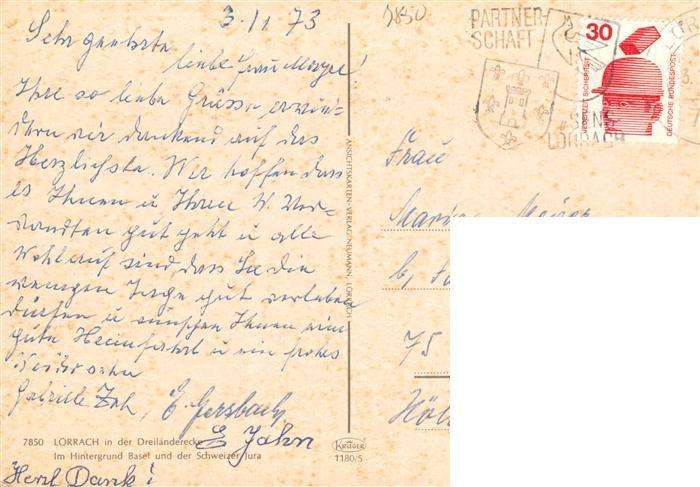 3.11 73
Sehr geehrte
liebe Frau Mayer!
Ihre so liebe Grüsse erwie-
dern wir dankend auf das
Herzlichste. Wir hoffen dass
es Ihnen u Ihren W. Ver-
wandten gut geht u alle
Wohlauf sind dass Sie die
wenigen Tage gut verleben
dürfen u wünschen Ihnen eine
gute Heimfahrt u ein frohes
Gabriele
E. Gersbach
E Jahn
7850 LÖRRACH in der Dreiländerecke
Im Hintergrund Basel und der Schweizer Jura
Herzl Dank!
ANSICHTSKARTEN-VERLAG NEUMANN, LÖRRACH
Krüger
1180/5
7850
PARTNER-
SCHAFT
SENS
LÖRRACH
30
JEDERZEIT SICHERHEIT
DEUTSCHE BUNDESPOST
Frau
Maria
75